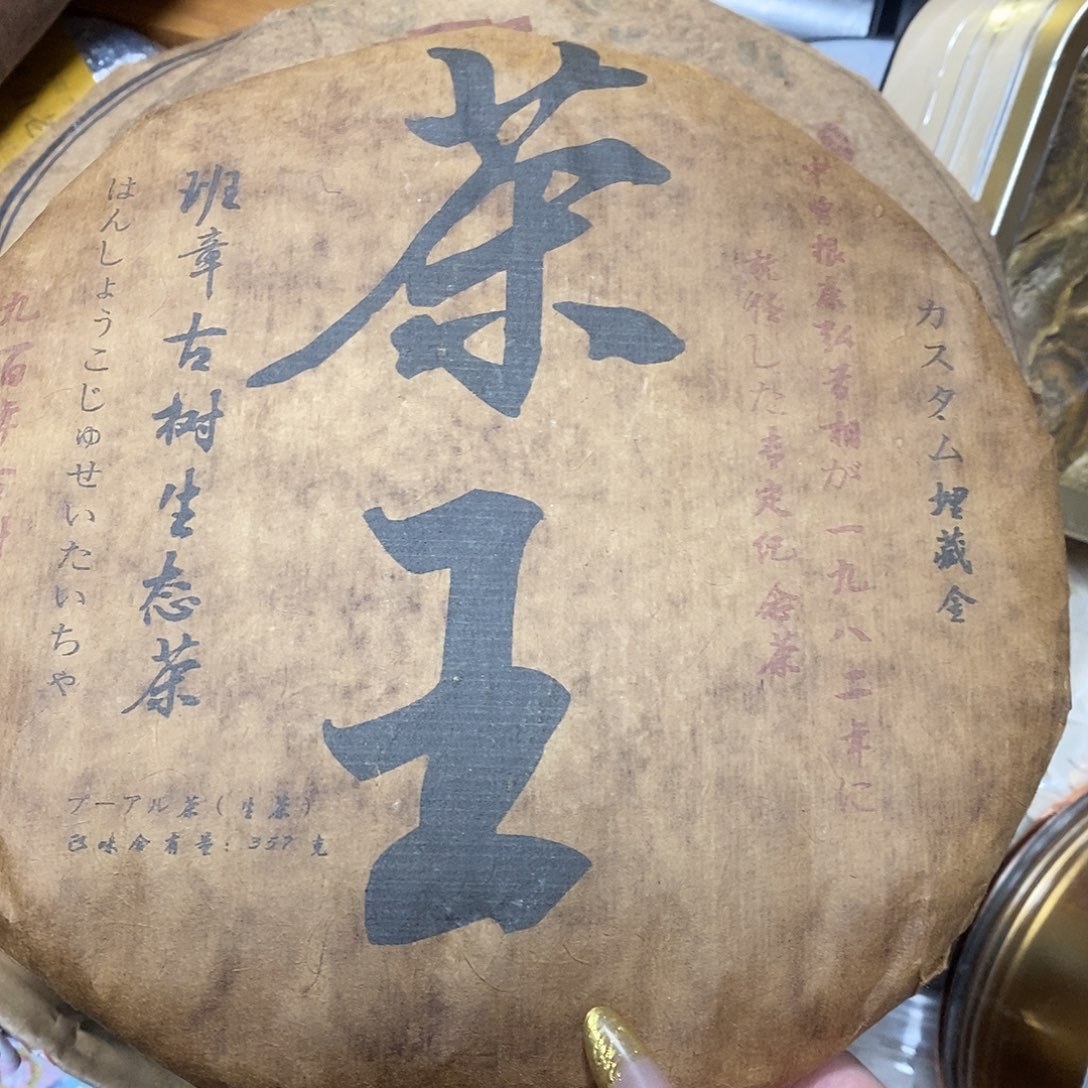 カスタム埋藏金
中曽根康弘首相が一九八二年に
就任した幸定纪念茶
茶王
班章古树生态茶
はんしょうこじゅせいたいちゃ
九百年古树
プーアル茶(生茶)
正味含有量: 357 克